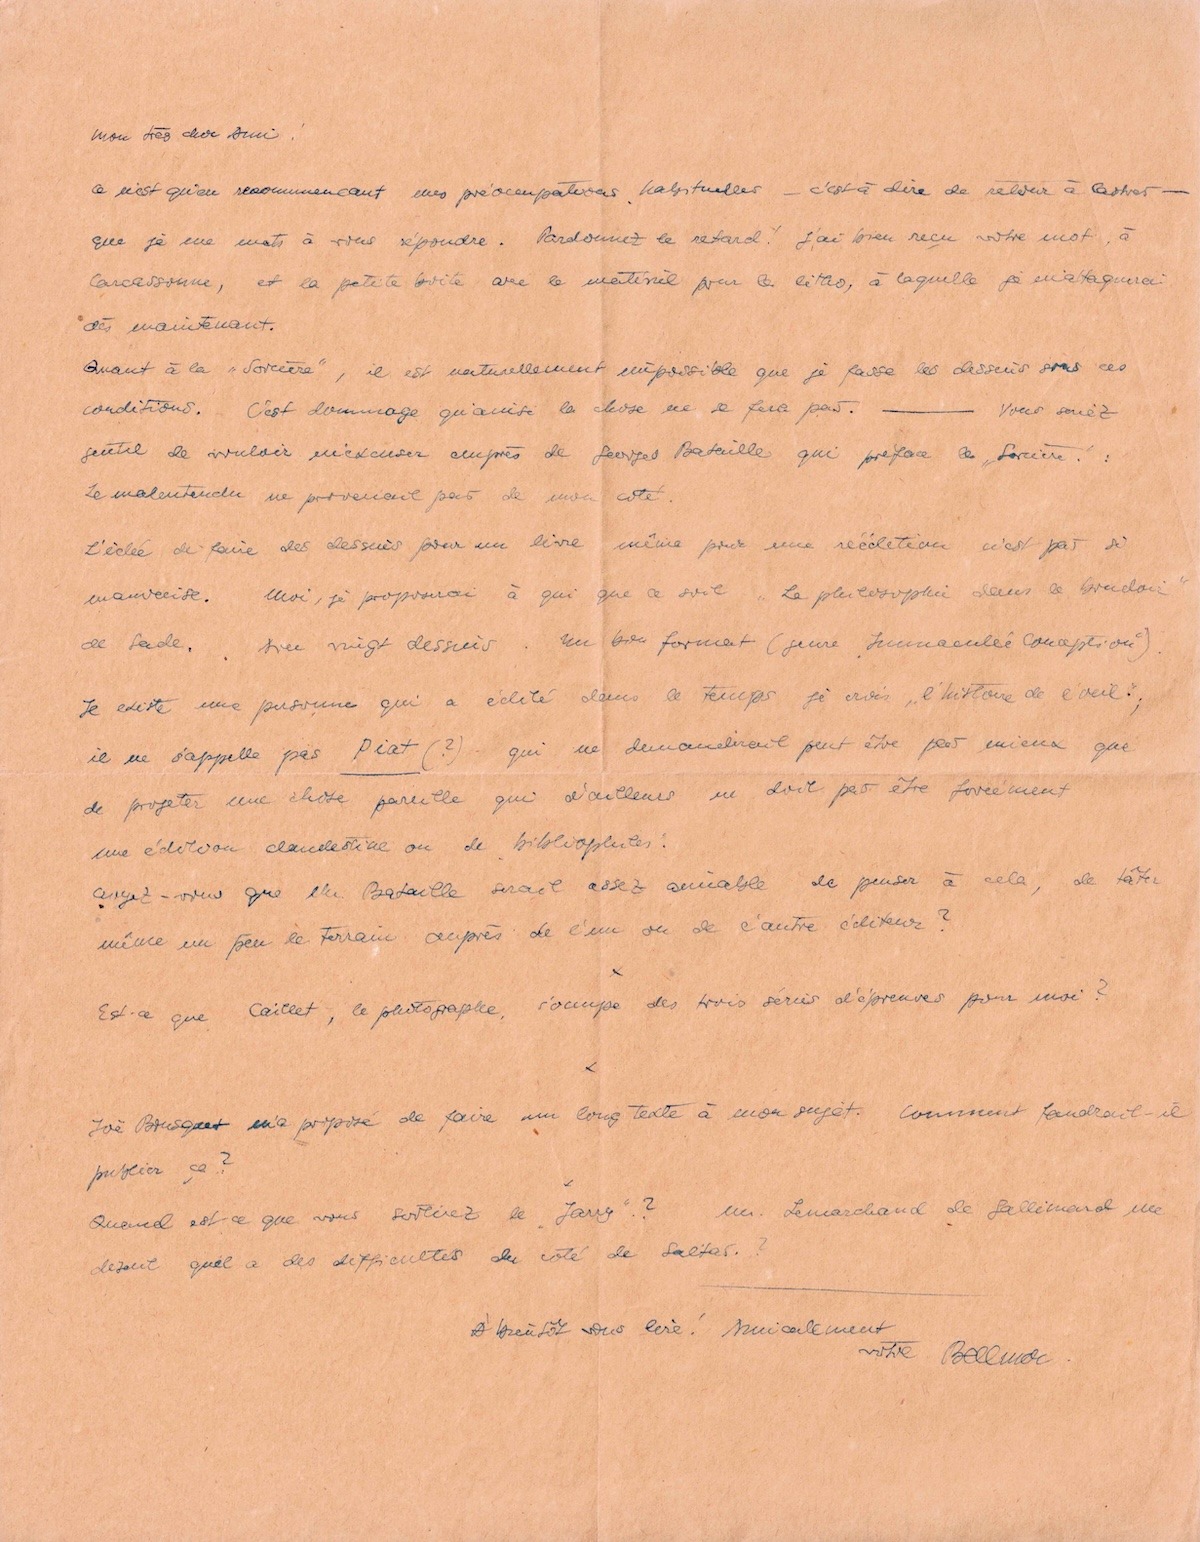 Mon très cher Ami !
Ce n'est qu'en recommencant mes préocupations habituelles — c'est à dire de retour à Castres —
que je me mets à vous répondre. Pardonnez le retard! J'ai bien reçu votre mot, à
Carcassonne, et la petite boite avec le matériel pour la litho, à laquelle je m'attaquerai
dès maintenant.
Quant à la „Sorcière“, il est naturellement impossible que je fasse les dessins sous ces
conditions. C'est dommage qu'ainsi la chose ne se fera pas. — Vous seriez
gentil de vouloir m'excuser auprès de Georges Bataille qui préface la „Sorcière“! :
Le malentendu ne provenait pas de mon coté.
L'idée de faire des dessins pour un livre même pour une réédition n'est pas si
mauvaise. Moi, je proposerai à qui que ce soit „La philosophie dans le boudoir“
de Sade. Avec vingt dessins. Un bon format (genre „Immaculée Conception“).
Il existe une personne qui a édité dans le temps je crois „l'histoire de l'œil“;
il ne s'appelle pas Piat (?) qui ne demanderait peut être pas mieux que
de projeter une chose pareille qui d'ailleurs ne doit pas être forcément
une édition clandestine ou de bibliophiles!
Croyez-vous que Mr. Bataille serait assez aimable de penser à cela, de tâter
même un peu le terrain auprès de l'un ou de l'autre éditeur?
x
Est-ce que Caillet, le photographe, s'occupe des trois séries d'épreuves pour moi?
x
Joë Bousquet m'a proposé de faire un long texte à mon sujet. Comment faudrait-il
publier ça?
x
Quand est-ce que vous sortirez le „Jarry“? Mr. Lemarchand de Gallimard me
disait qu'il a des difficultés du côté de Saltas.?
A bientôt vous lire! Amicalement
votre Bellmer.